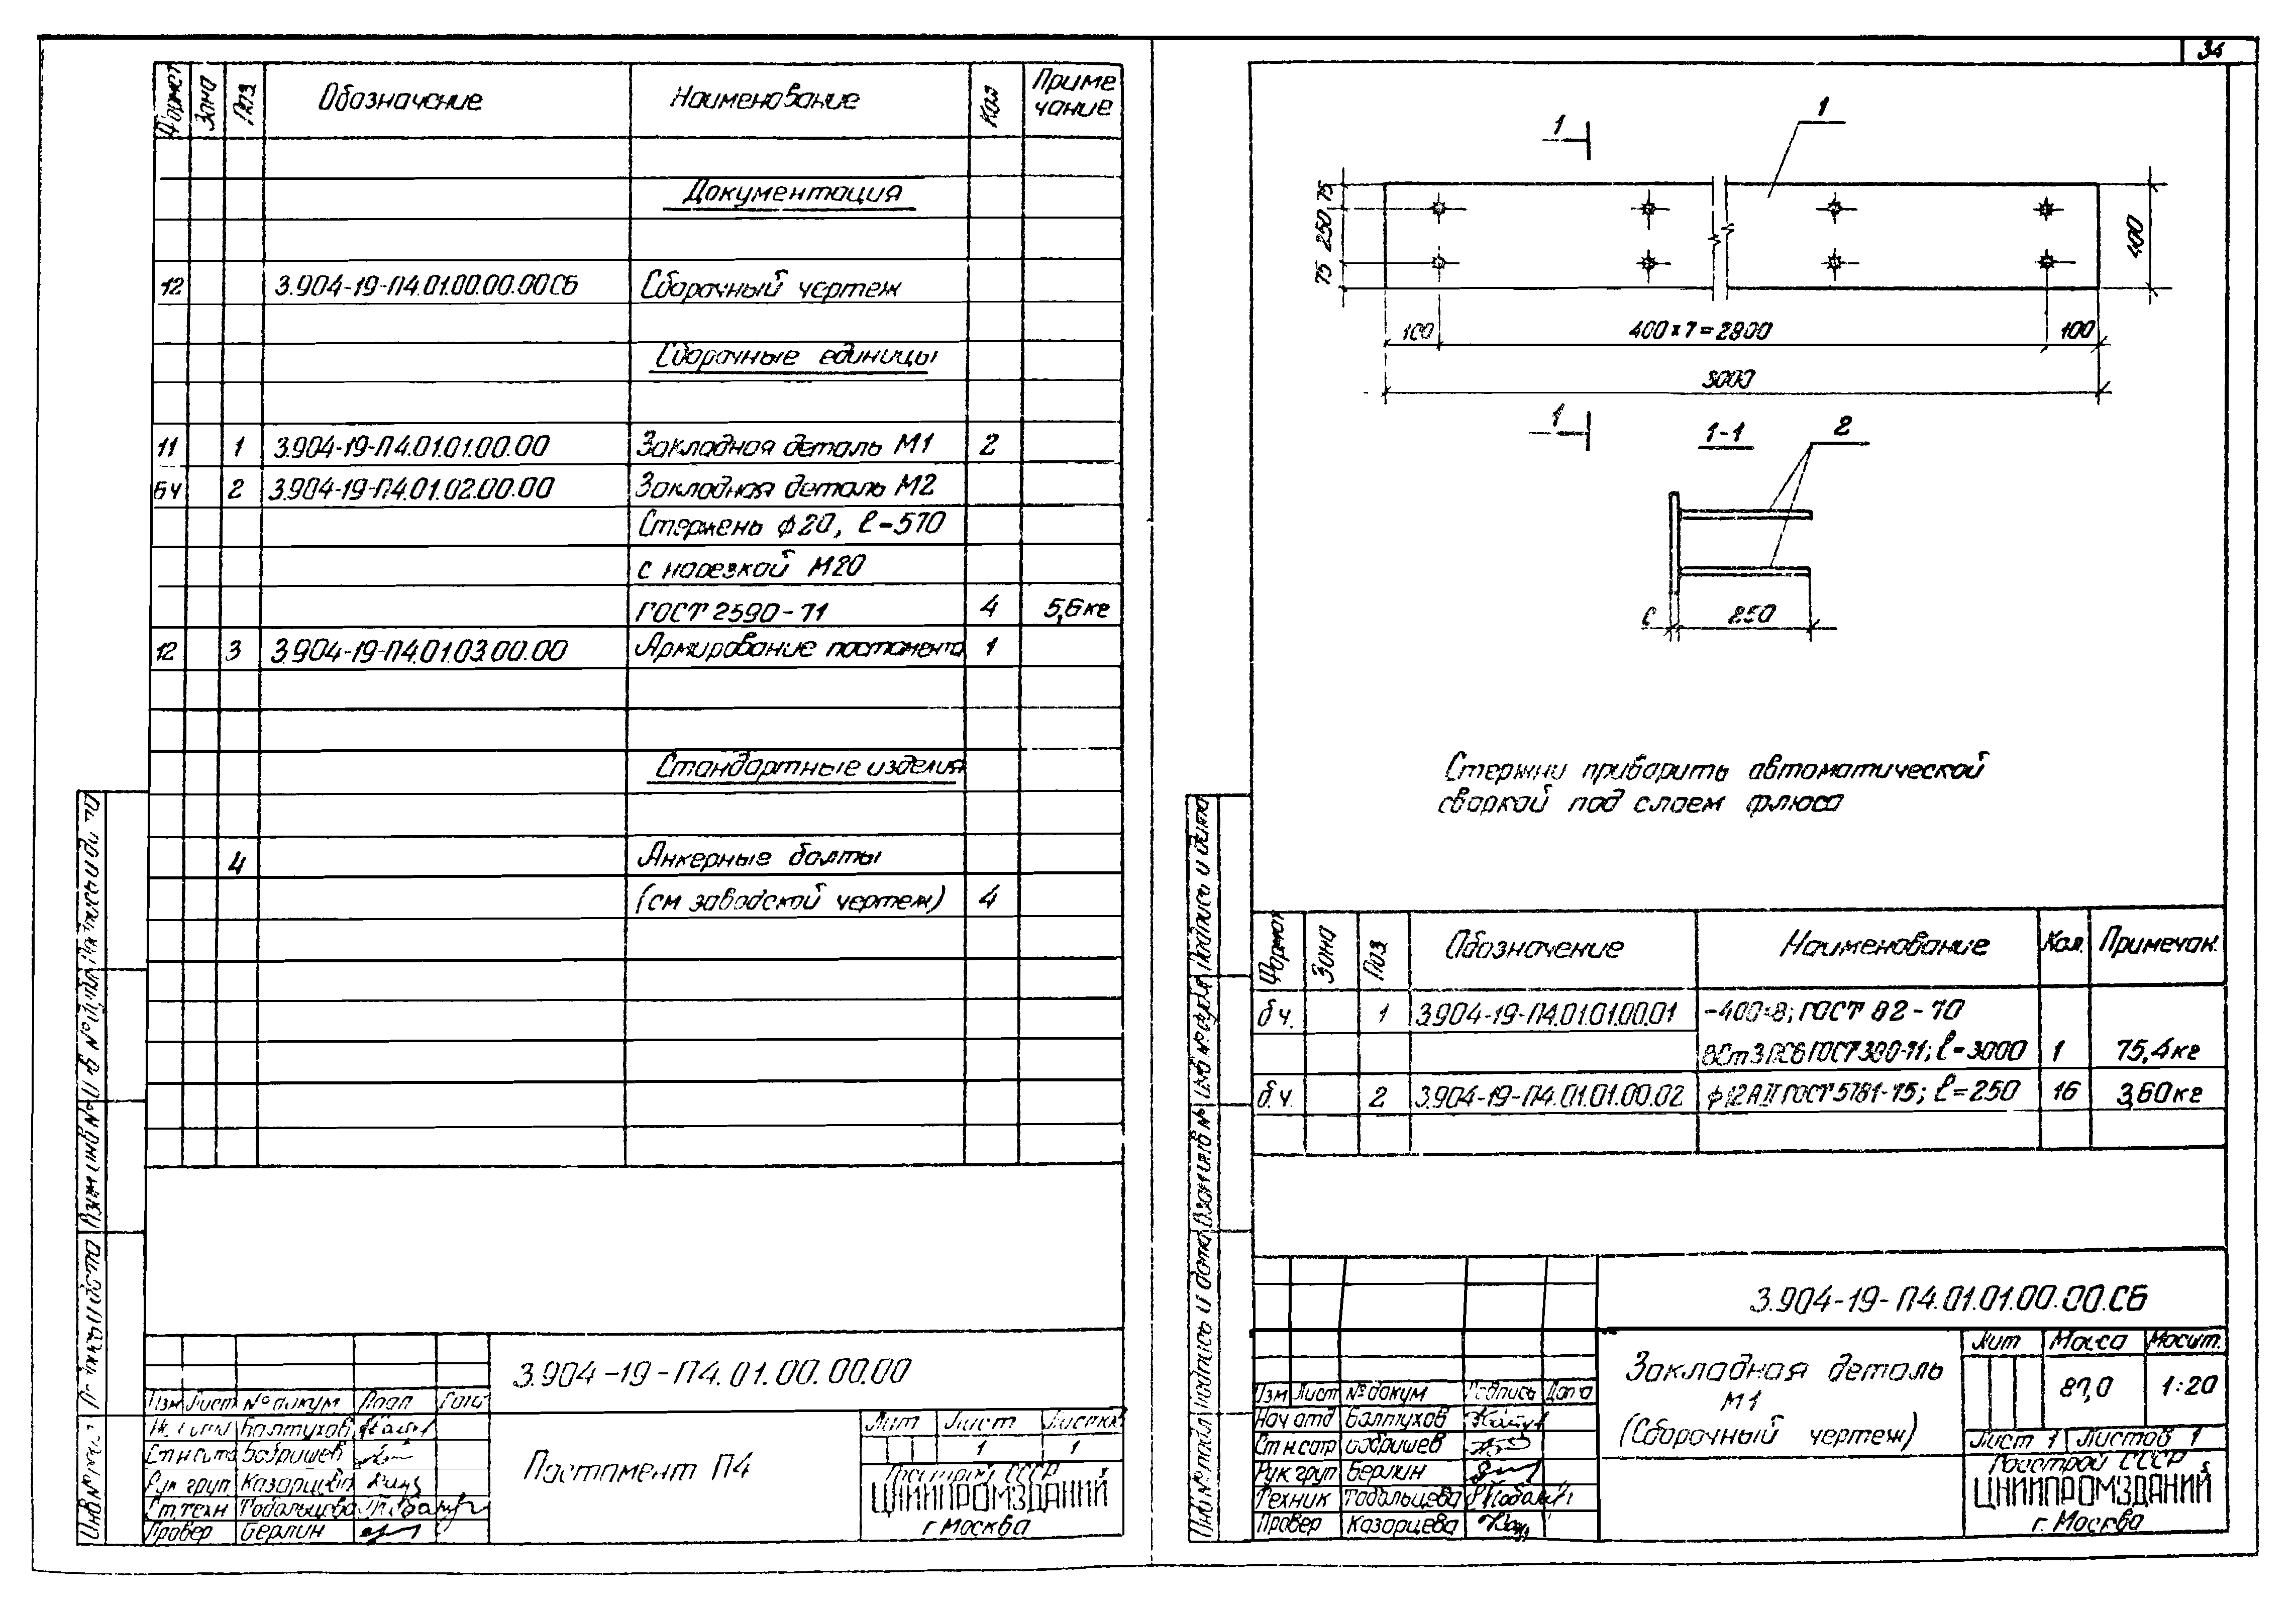 34
Формат Зона Поз Обозначение Наименование Кол Примечание
Документация
12 3.904-19-П4.01.00.00.00СБ Сборочный чертеж
Сборочные единицы
11 1 3.904-19-П4.01.01.00.00 Закладная деталь М1 2
БЧ 2 3.904-19-П4.01.02.00.00 Закладная деталь М2
Стержень ф20, ℓ-570
с нарезкой М20
ГОСТ 2590-71 4 5,6кг
12 3 3.904-19-П4.01.03.00.00 Армирование постамента 1
Стандартные изделия
4 Анкерные болты
(см заводской чертеж) 4
3.904-19-П4.01.00.00.00
Изм Лист № докум Подп Дата
Балтухов
Бобришев
Рук груп Казарцева
Ст.техн Тобольцева
Провер Берлин
Постамент П4
Лит Лист Листов
1 1
Госстрой СССР
ЦНИИПРОМЗДАНИЙ
г Москва
1 1
75 250 75
400
100 400х7=2800 100
3000
1 1-1 2
250
Стержни приварить автоматической
сваркой под слоем флюса
Формат Зона Поз Обозначение Наименование Кол. Примечан.
б.ч. 1 3.904-19-П4.01.01.00.01 -400×8; ГОСТ 82-70
ВСт3ПС6 ГОСТ 380-71; ℓ=3000 1 75,4кг
б.ч. 2 3.904-19-П4.01.01.00.02 ф12АII ГОСТ 5781-75; ℓ=250 16 3,60кг
Подпись и дата
3.904-19-П4.01.01.00.00.СБ
Изм Лист № докум Подпись Дата
Нач отд Балтухов
Бобришев
Рук груп Берлин
Техник Тобольцева
Провер Казарцева
Закладная деталь
М1
(Сборочный чертеж)
Лит Масса Масшт.
87,0 1:20
Лист 1 Листов 1
Госстрой СССР
ЦНИИПРОМЗДАНИЙ
г. Москва